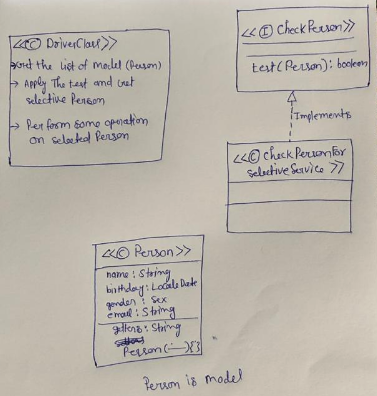 <<Ⓒ DriverClass>>
→ Get the list of Model (Person)
→ Apply The test and Get
selective Person
→ Perform some operation
on selected Person
<<Ⓘ CheckPerson>>
test(Person): boolean
Implements
<<Ⓒ CheckPersonFor
selectiveService>>
<<Ⓒ Person>>
name: String
birthday: LocaleDate
gender: Sex
email: String
getters: String
Person(——){}
Person is model